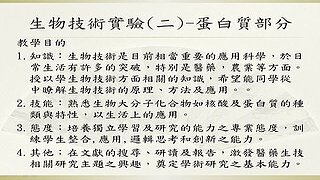 生物技術實驗(二)-蛋白質部分
教學目的
1.知識：生物技術是目前相當重要的應用科學，於日
常生活有許多的突破，特別是醫藥，農業等方面。
授以學生技術方面相關的知識，希望能同學從
中瞭解生物技術的原理、方法及應用。。
2.技能：熟悉生物大分子化合物如核酸及蛋白質的種
類與特性，以生活上的應用。
3.態度：培養獨立學習及研究的能力之專業態度，訓
練學生整合,應用,邏輯思考和創新之能力。
4.其他：在文獻的搜尋、研讀及報告，激發醫藥生技
相關研究主題之興趣，奠定學術研究之基本能力。